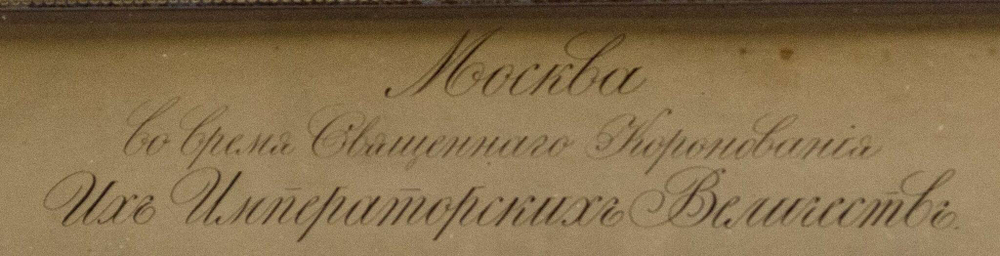 Москва
во время Священнаго Коронованія
Ихъ Императорскихъ Величествъ.